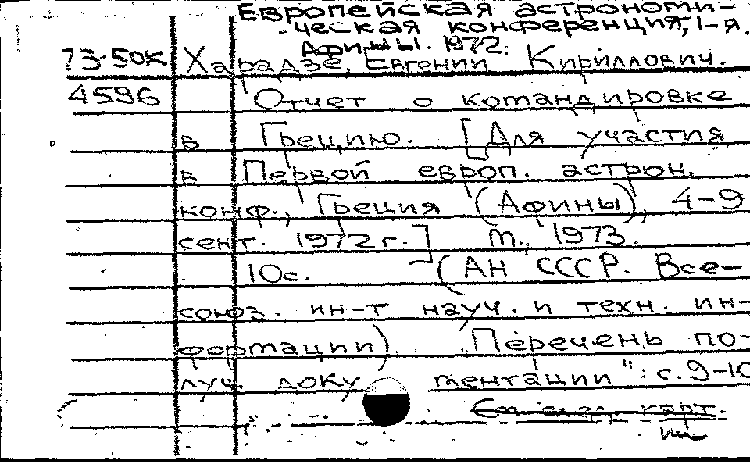 Европейская астрономи-
ческая конференция, I-я.
Афины. 1972.
73-50К Харадзе, Евгений Кириллович.
4596 Отчет о командировке
в Грецию. [Для участия
в Первой европ. астрон.
конф., Греция (Афины), 4-9
сент. 1972 г.] М., 1973.
10с. (АН СССР. Все-
союз. ин-т науч. и техн. ин-
формации). "Перечень по-
луч. документации": с. 9-10
карт.